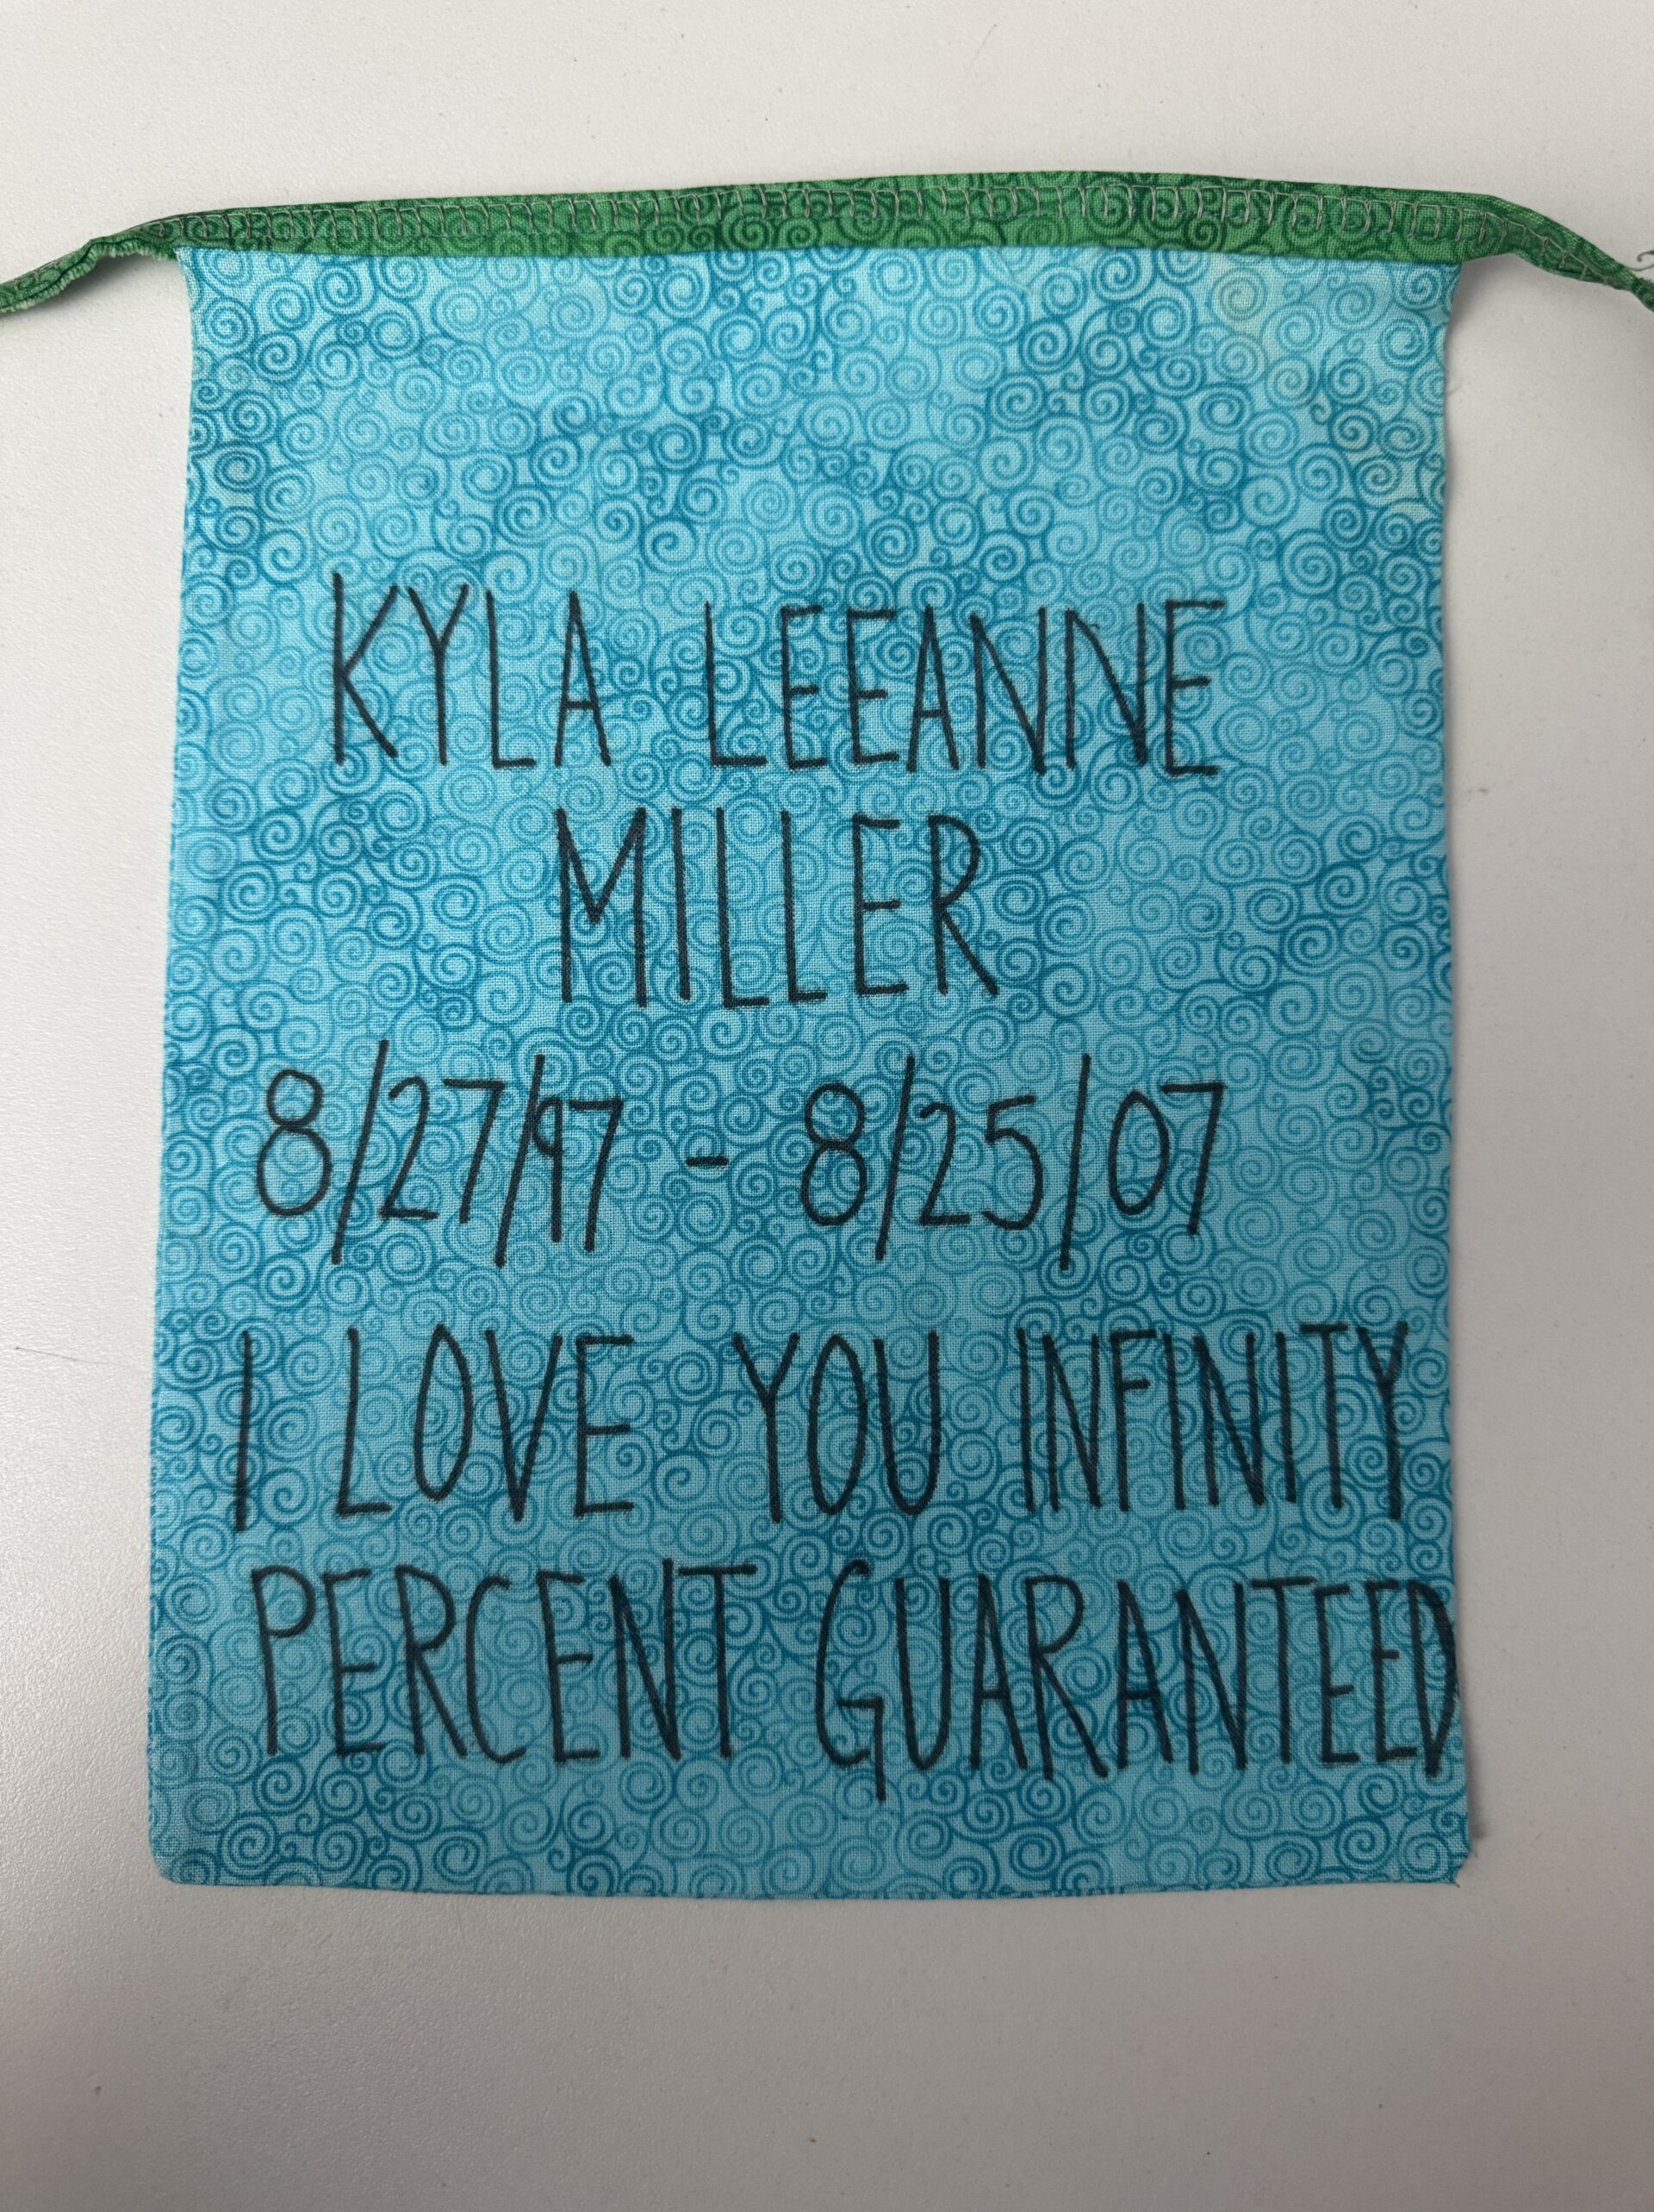 KYLA LEEANNE
MILLER
8/27/97 - 8/25/07
I LOVE YOU INFINITY
PERCENT GUARANTEED